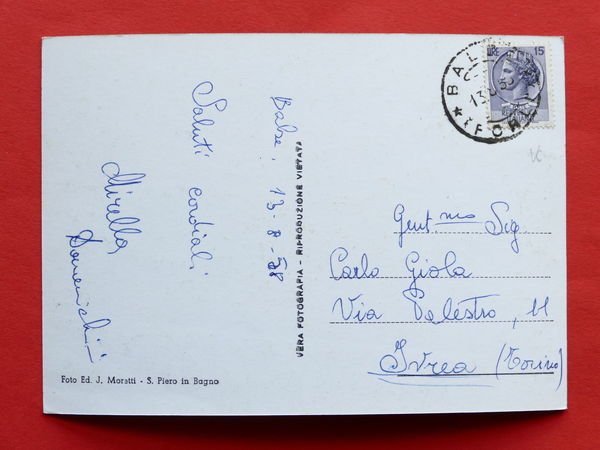 Balze, 13-8-58
Saluti cordiali
Mirella
Domenichini
VERA FOTOGRAFIA - RIPRODUZIONE VIETATA
Foto Ed. J. Moretti - S. Piero in Bagno
LIRE 15
Gent.mo Sig.
Carlo Giola
Via Palestro, 11
Ivrea (Torino)